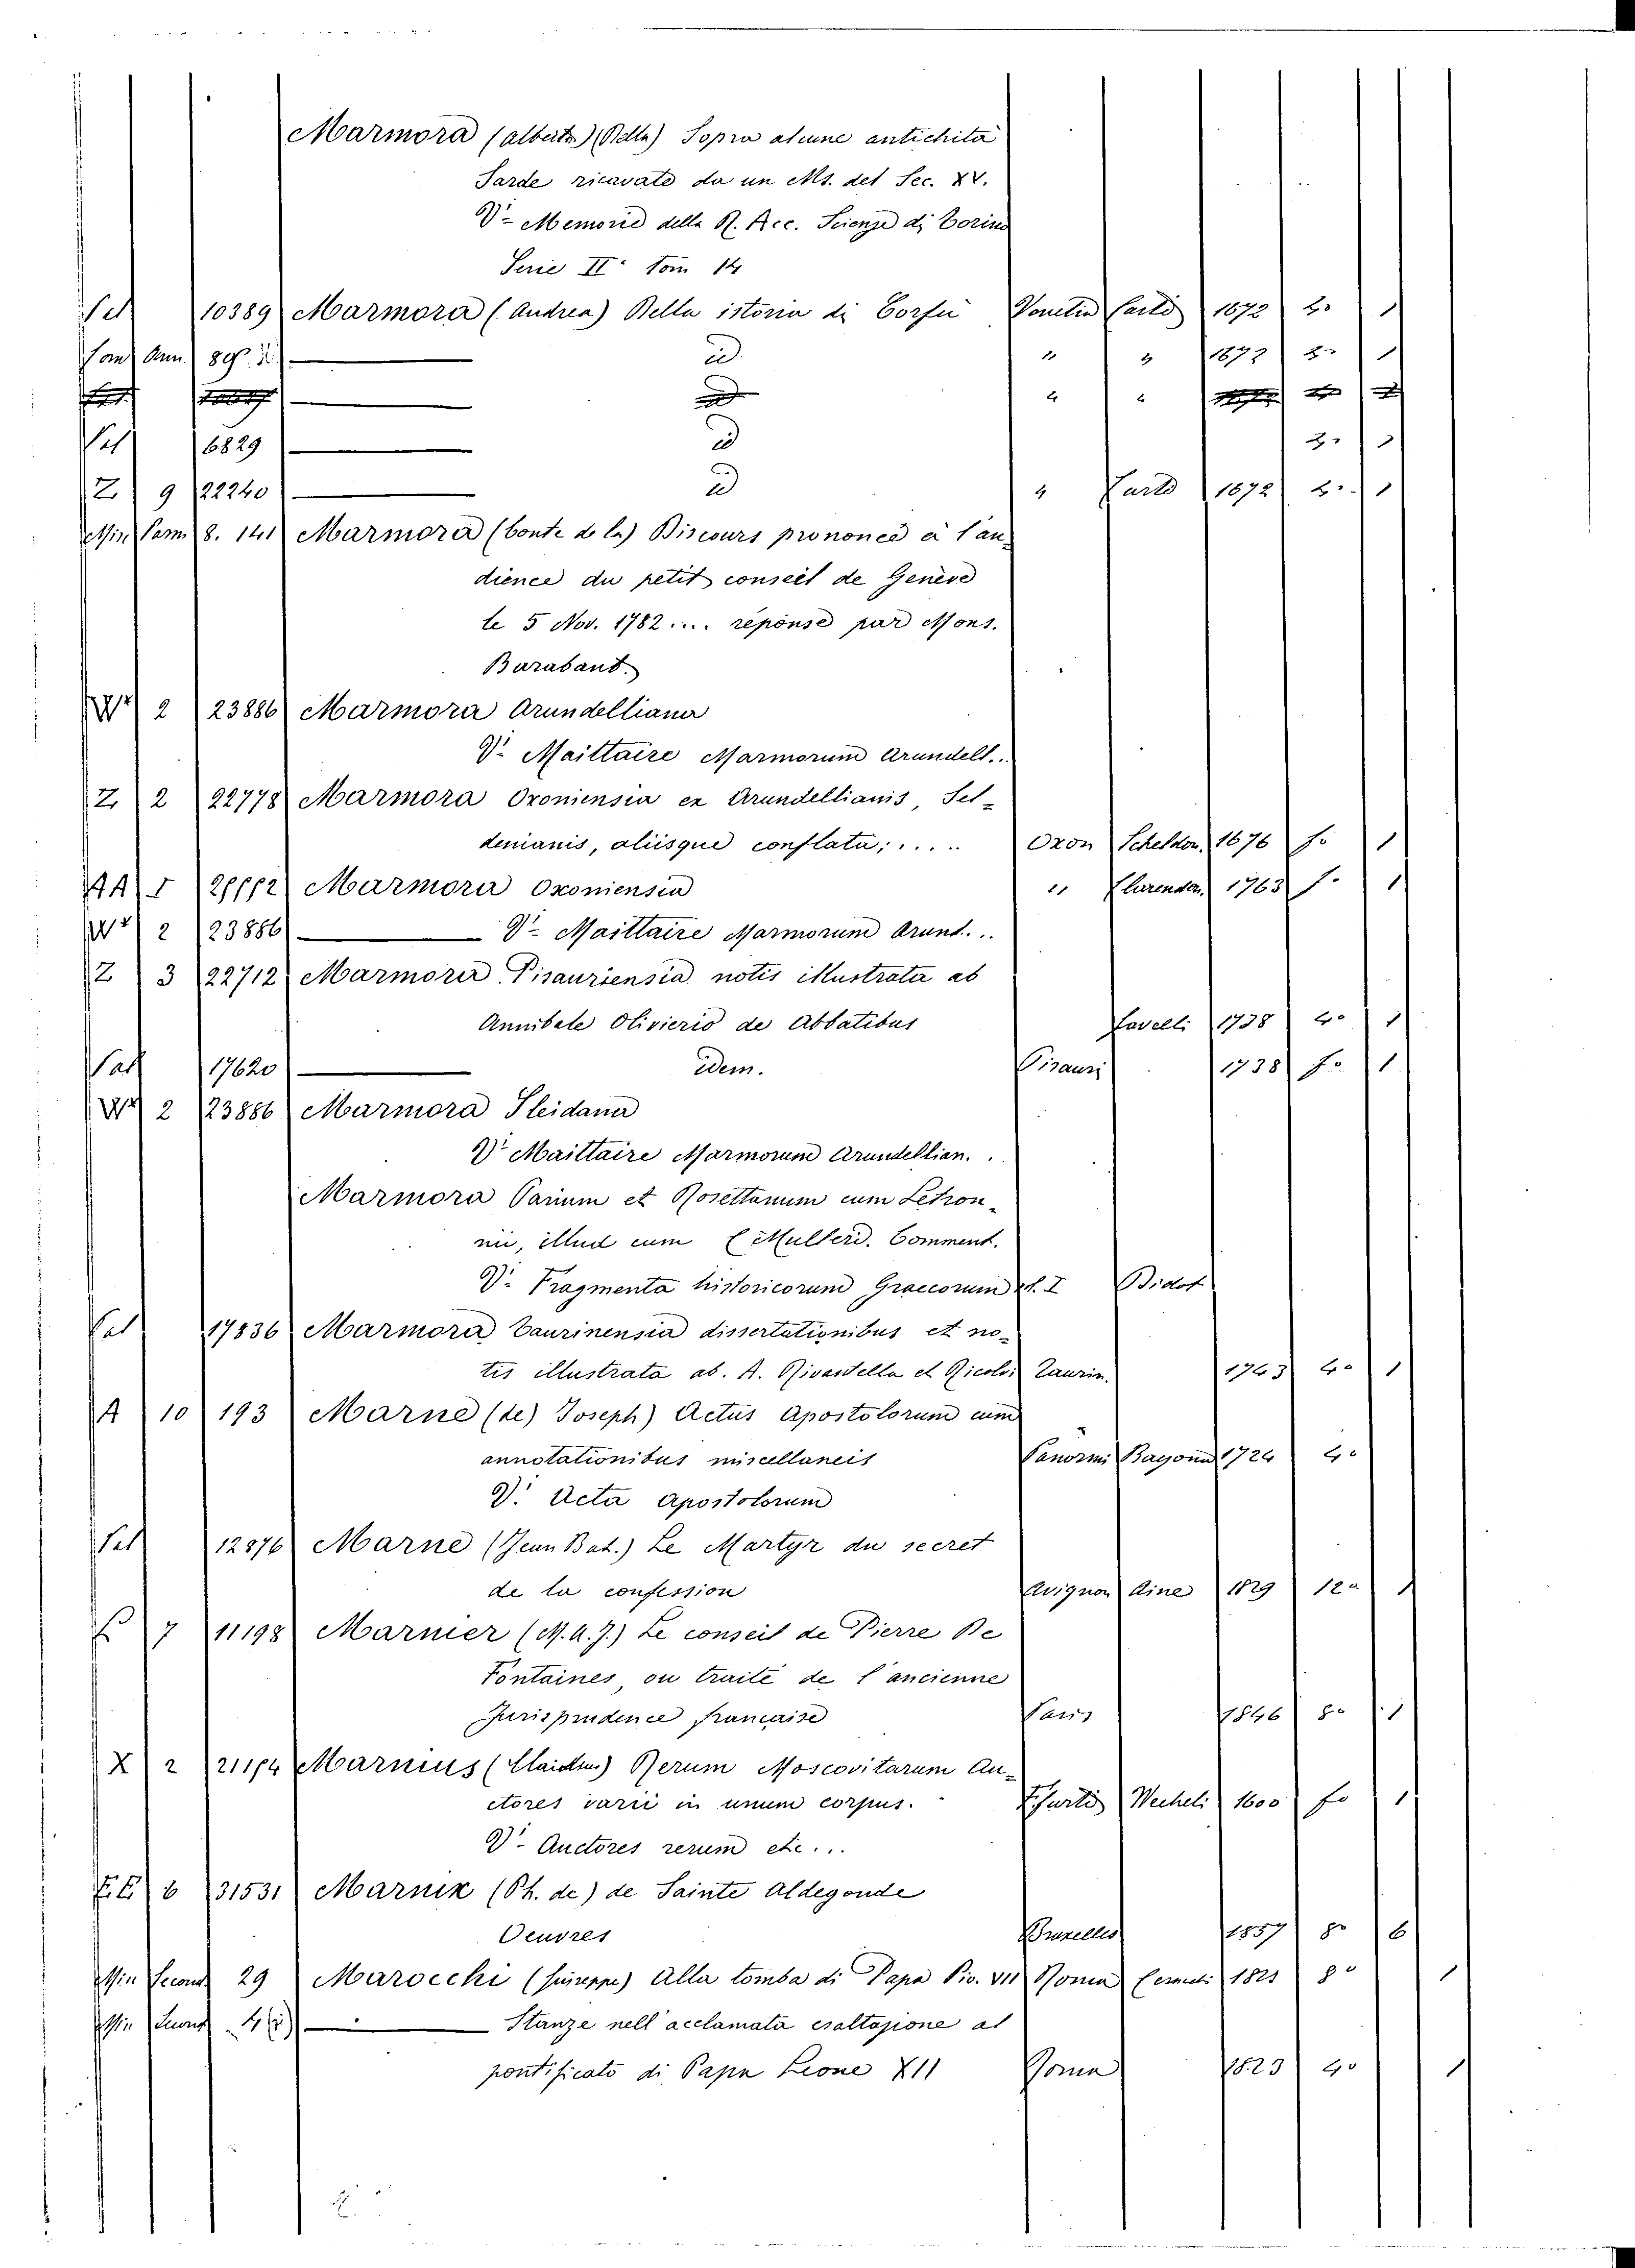 Marmora (Alberto) (Della) Sopra alcune antichità
Sarde ricavate da un Ms. del Sec. XV.
V- Memorie della R. Acc. Scienze di Torino
Serie II Tom 14
10389 Marmora (Andrea) Della istoria di Corfù Venetia 1672 4° 1
id " " 1672 1
id
6829 id 1
Z 9 22240 id " 1672 1
Min 8. 141 Marmora (Conte de la) Discours prononcé à l'au-
dience du petit conseil de Genève
le 5 Nov. 1782.... réponse par Mons.
Baraband.
2 23886 Marmora Arundelliana
V. Maittaire Marmorum Arundell...
Z 2 22778 Marmora Oxoniensia ex Arundellianis, Sel-
denianis, aliisque conflata;..... Oxon Scheldon. 1676 fo 1
AA Marmora Oxoniensia " Clarendon. 1763 f. 1
2 23886 V- Maittaire Marmorum Arund...
Z 3 22712 Marmora Pisauriensia notis illustrata ab
Annibale Oliverio de Abbatibus 1738 1
17620 idem. Pisauri 1738 fo 1
2 23886 Marmora Sleidana
V. Maittaire Marmorum Arundellian..
Marmora Parium et Rosettanum cum Letron-
nii, illud cum Mulleri. Comment.
V. Fragmenta historicorum Graecorum vol. I Didot
17836 Marmora Taurinensia dissertationibus et no-
tis illustrata ab. A. Rivautella et Ricolvi Taurin. 1743 4° 1
A 10 193 Marne (de) Joseph) Actus Apostolorum cum
annotationibus miscellaneis Panormi 1724 4°
V. Acta Apostolorum
12876 Marne (Jean Bat.) Le Martyr du secret
de la confession Avignon Aine 1829 12° 1
7 11198 Marnier (M.A.J.) Le conseil de Pierre De
Fontaines, ou traité de l'ancienne
Jurisprudence francaise Paris 1846 8° 1
X 2 Marnius (Claudius) Rerum Moscovitarum Au-
ctores varii in unum corpus. Wecheli 1600 fo 1
V- Auctores rerum etc...
EE 6 31531 Marnix (Ph. de) de Sainte Aldegonde
Oeuvres Bruxelles 1857 8° 6
Min 29 Marocchi (Giuseppe) Alla tomba di Papa Pio. VII Roma 8° 1
Min Stanze nell'acclamata esaltazione al
pontificato di Papa Leone XII Roma 1823 4° 1